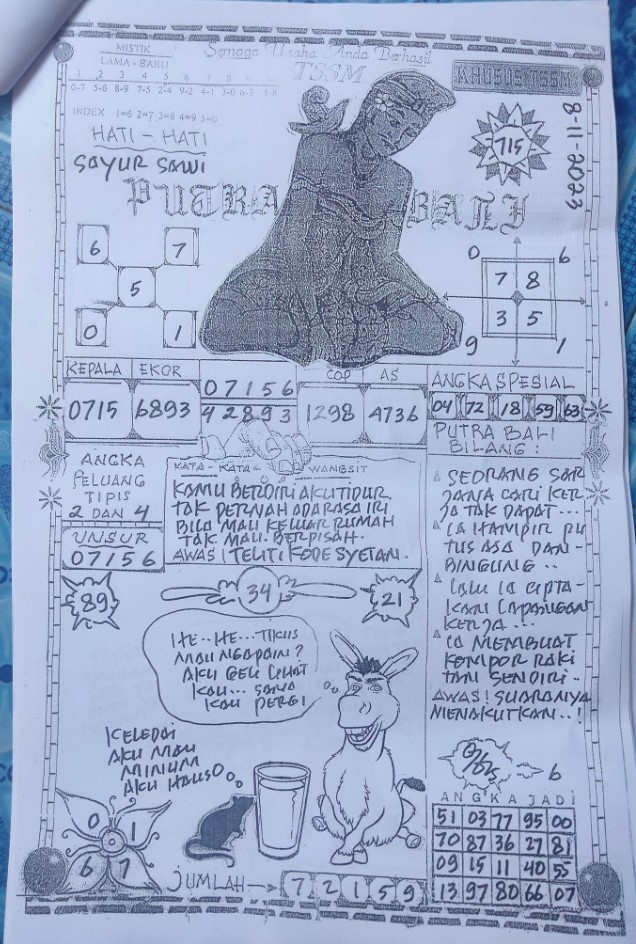 MISTIK
LAMA - BARU
1 2 3 4 5 6 7 8
0-7 5-6 8-9 7-5 2-4 9-2 4-1 3-0 6-3 1-8
INDEX 1=6 2=7 3=8 4=9 5=0
HATI - HATI
SAYUR SAWI
Semoga Usaha Anda Berhasil
TSSM
KHUSUS TSSM
715
8-11-2023
PUTRA BALI
6 7
5
0 1
0 6
7 8
3 5
9 1
KEPALA EKOR
0715 6893
07156
42893
COP AS
1298 4736
ANGKA SPESIAL
04 72 18 59 63
ANGKA
PELUANG
TIPIS
2 DAN 4
UNSUR
07156
KATA - KATA WANGSIT
KAMU BERDIRI AKU TIDUR
TAK PERNAH ADA RASA IRI
BILA MAU KELUAR RUMAH
TAK MAU BERPISAH.
AWAS! TELITI KODE SYETAN.
PUTRA BALI
BILANG:
SEORANG SAR
JANA CARI KER
JA TAK DAPAT...
IA HAMPIR PU
TUS ASA DAN-
BINGUNG..
LALU IA CIPTA-
KAN LAPANGAN
KERJA...
IA MEMBUAT
KOMPOR RAKI
TAN SENDIRI..
AWAS! SUARANYA
MENAKUTKAN..!
89
34
21
HE..HE...TIKUS
MAU NGAPAIN?
AKU
KAU...
KAU PERGI
KELEDAI
AKU MAU
MINUM
AKU HAUS
0 1
6 7
JUMLAH → 7 2 1 5 9
6
ANGKA JADI
51 03 77 95 00
70 87 36 27 81
09 15 11 40 55
13 97 80 66 07